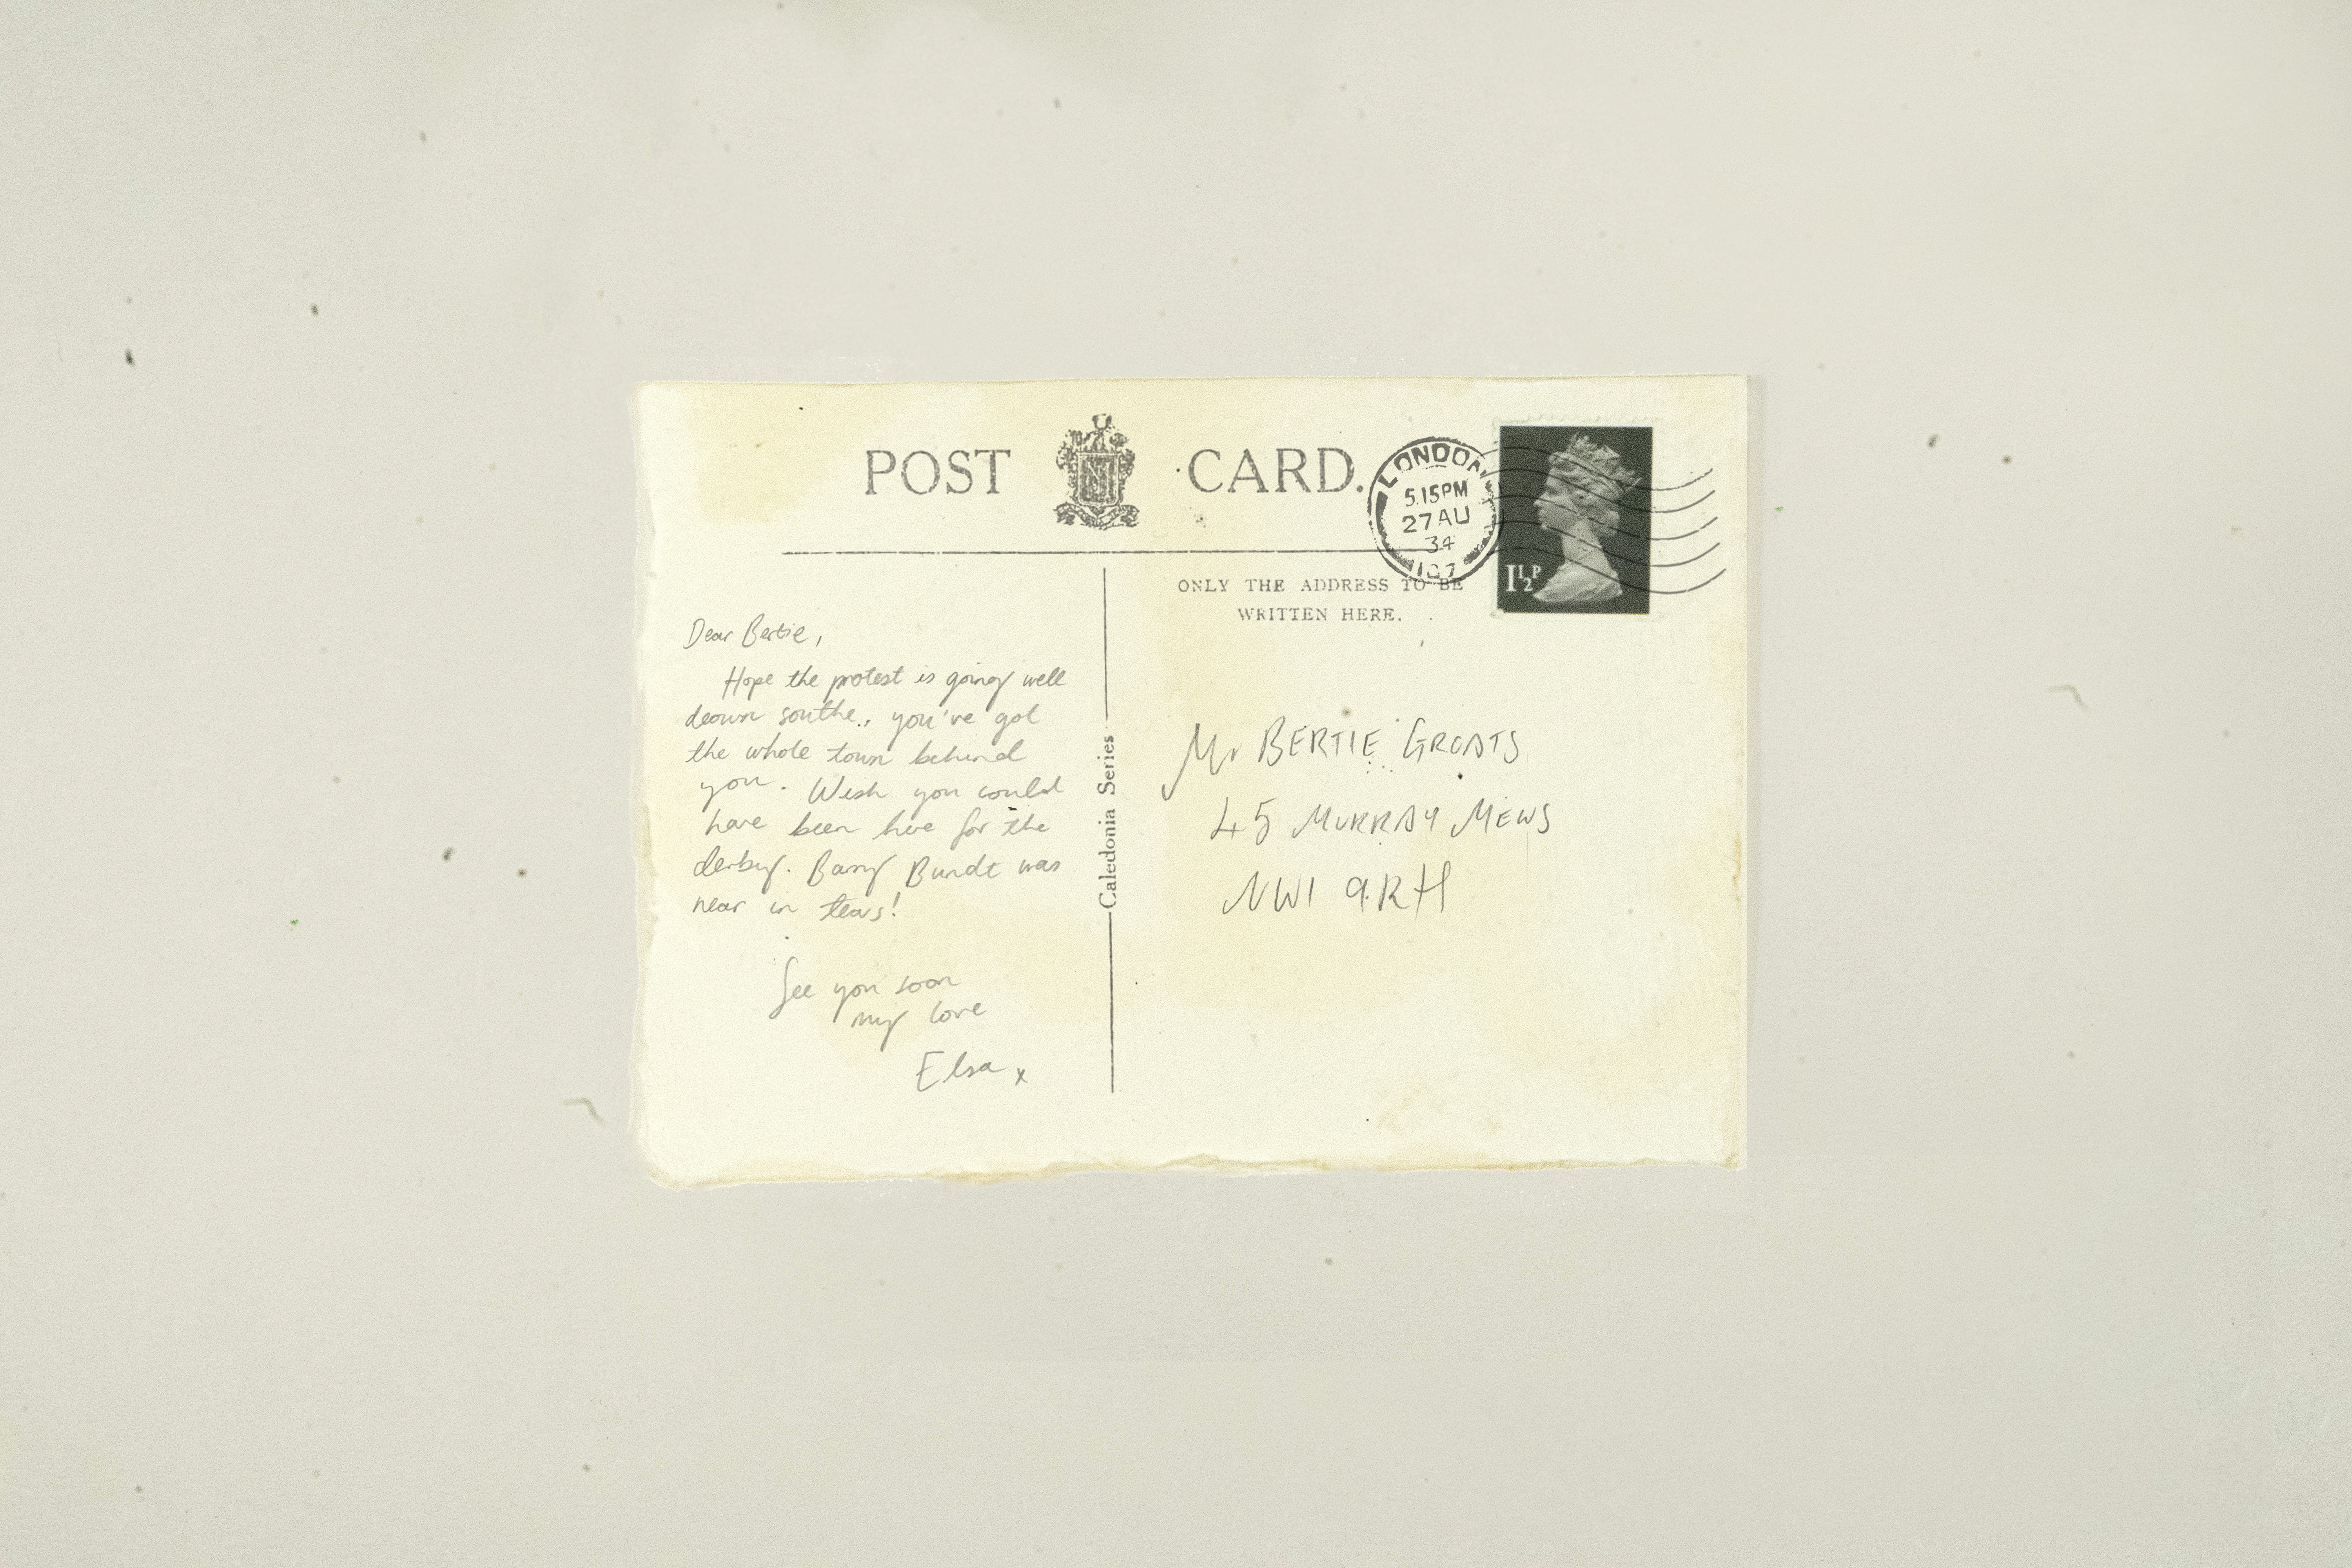 POST CARD.
LONDON
5.15PM
27 AU
34
ONLY THE ADDRESS TO BE
WRITTEN HERE.
1½P
Dear Bertie,
Hope the protest is going well
down southe., you've got
the whole town behind
you. Wish you could
have been here for the
derby. Barry Bundt was
near in tears!
See you soon
my love
Elsa x
Caledonia Series
Mr BERTIE GROATS
45 MURRAY MEWS
NW1 9RH